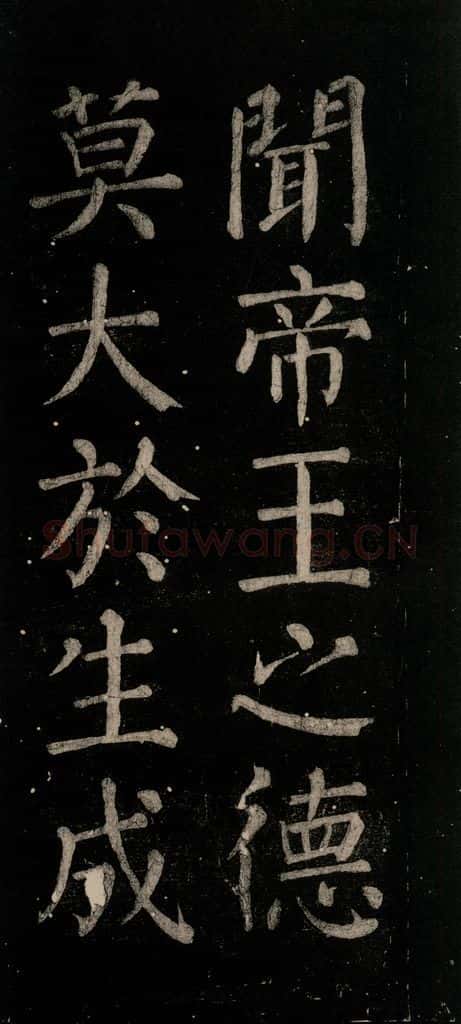 聞帝王之德
莫大於生成
Shufawang.CN